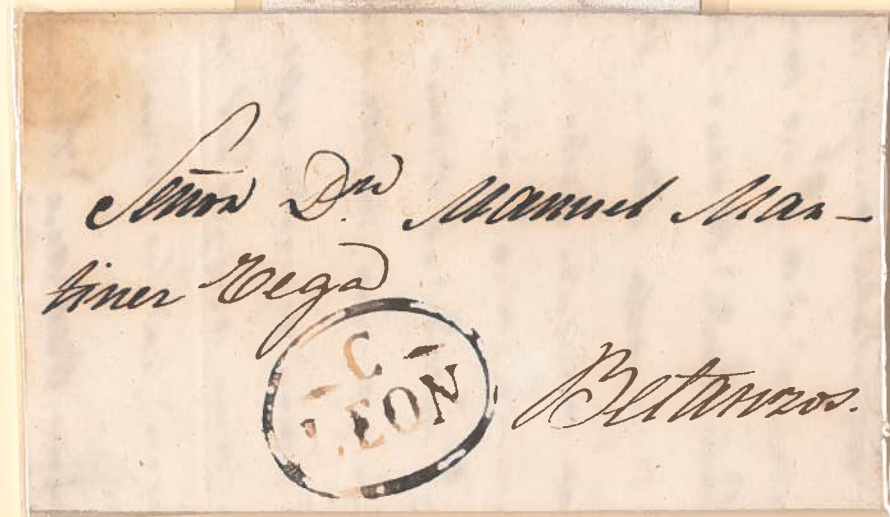 Señor Dn Manuel Mar-
tinez Vega
C
LEON
Betanzos.